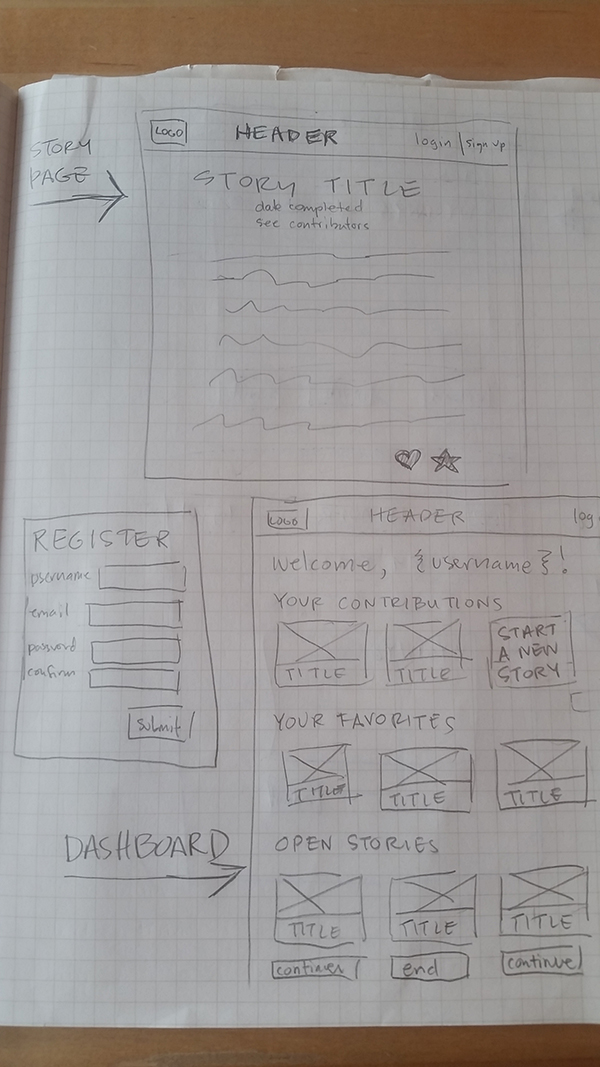 STORY
PAGE
LOGO
HEADER
login | sign up
STORY TITLE
date completed
see contributors
REGISTER
username
email
password
confirm
submit
DASHBOARD
LOGO
HEADER
log
Welcome, {username}!
YOUR CONTRIBUTIONS
TITLE
TITLE
START
A NEW
STORY
YOUR FAVORITES
TITLE
TITLE
TITLE
OPEN STORIES
TITLE
TITLE
TITLE
continue
end
continue